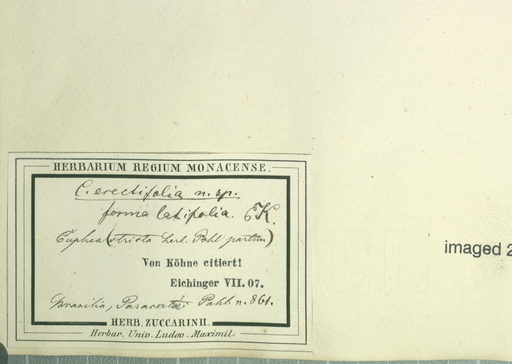 HERBARIUM REGIUM MONACENSE.
C. erectifolia n. sp.
forma latifolia. K.
Cuphea (stricta herb. Pohl partim)
Von Köhne citiert!
Eichinger VII. 07.
Brasilia, Pohl. n. 861.
HERB. ZUCCARINII.
Herbar. Univ. Ludov. Maximil.
imaged 2